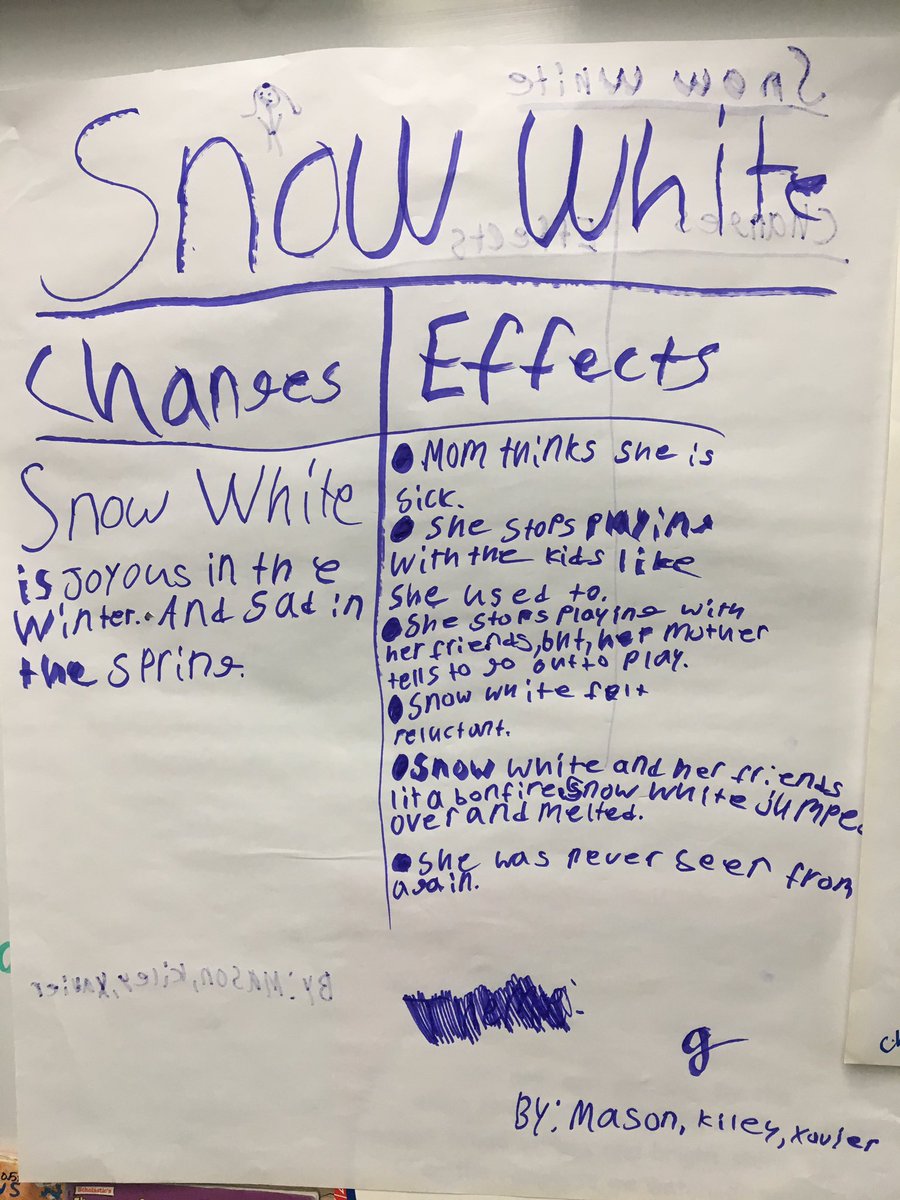 Snow White
Snow White
Changes Effects
Changes
Effects
Snow White
is Joyous in the
Winter.. And Sad in
the spring.
Mom thinks she is
sick.
She stops playing
with the kids like
she used to.
She stops playing with
her friends, but, her mother
tells to go out to play.
Snow white felt
reluctant.
Snow white and her friends
lit a bonfire. Snow white jumped
over and melted.
She was never seen from
again.
By: Mason, Kiley, Xavier
g
BY: Mason, Kiley, Xavier
Scholastic